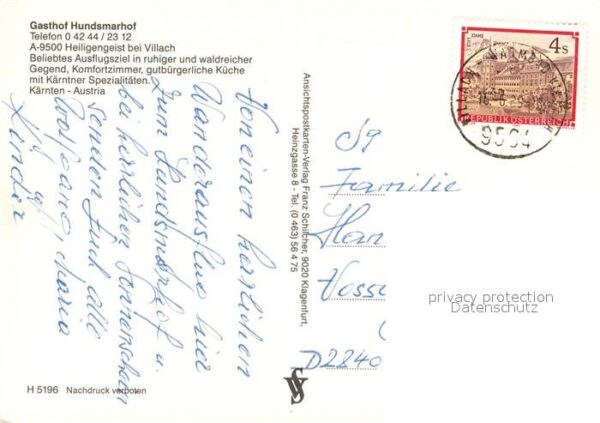 Gasthof Hundsmarhof
Telefon 0 42 44 / 23 12
A-9500 Heiligengeist bei Villach
Beliebtes Ausflugsziel in ruhiger und waldreicher
Gegend, Komfortzimmer, gutbürgerliche Küche
mit Kärntner Spezialitäten.
Kärnten - Austria
Von einem herrlichen
Wanderausflug hier
zum Hundsmarhof u.
bei herrlichem Sonnenschein
senden Euch alle
Wolfgang, Maria
Kinder
Ansichtspostkarten-Verlag Franz Schilcher, 9020 Klagenfurt,
Heinzgasse 8 - Tel. (0 463) 56 4 75
4s
REPUBLIK ÖSTERREICH
VILLACH
9504
Familie
Han
Voss
D2240
privacy protection
Datenschutz
H 5196 Nachdruck verboten